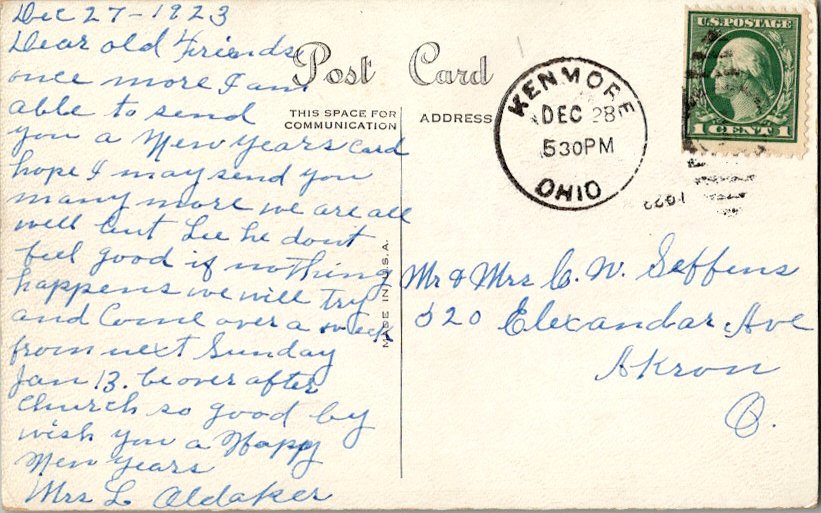 Dec 27-1923
Dear old Friends
once more I am
able to send
you a New Years Card
hope I may send you
many more we are all
well but Lee he dont
feel good if nothing
happens we will try
and Come over a week
from next Sunday
Jan 13. be over after
church so good by
wish you a Happy
New Years
Mrs L Oldaker
Post Card
THIS SPACE FOR
COMMUNICATION
ADDRESS
MADE IN U.S.A.
KENMORE
DEC 28
530PM
OHIO
U.S. POSTAGE
1 CENT 1
Mr & Mrs C. W. Seffens
520 Elexandar Ave
Akron
O.